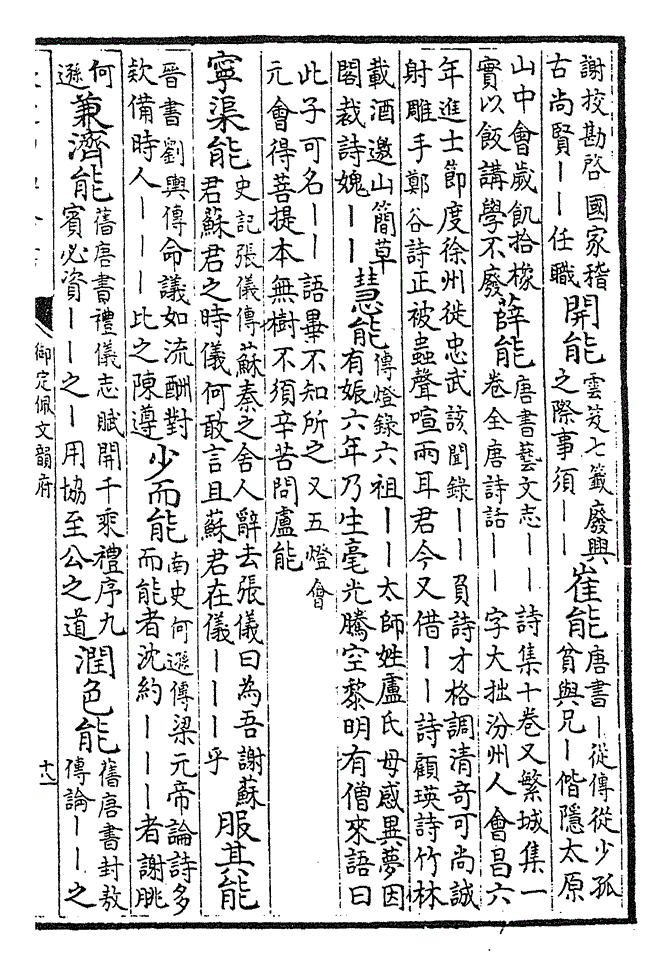 謝挍勘啓國家稽
古尚賢——任職
開能
雲笈七籤廢興
之際事須——
崔能
唐書—從傳從少孤
貧與兄—偕隱太原
山中會歲飢拾橡
實以飯講學不廢
薛能
唐書藝文志——詩集十卷又繁城集一
卷全唐詩話——字大拙汾州人會昌六
年進士節度徐州徙忠武該聞錄——負詩才格調清奇可尚誠
射雕手鄭谷詩正被蟲聲喧兩耳君今又借——詩顧瑛詩竹林
載酒邀山簡草
閣裁詩媿——
慧能
傳燈錄六祖——太師姓盧氏母感異夢因
有娠六年乃生毫光騰空黎明有僧來語曰
此子可名——語畢不知所之又五燈會
元會得菩提本無樹不須辛苦問盧能
寧渠能
史記張儀傳蘇秦之舍人辭去張儀曰為吾謝蘇
君蘇君之時儀何敢言且蘇君在儀———乎
服其能
晉書劉輿傳命議如流酬對
欵備時人———此之陳遵
少而能
南史何遜傳梁元帝論詩多
而能者沈約———者謝朓
何
遜
兼濟能
舊唐書禮儀志賦開千乘禮序九
賓必資——之—用協至公之道
潤色能
舊唐書封敖
傳論——之
御定佩文韻府
十八